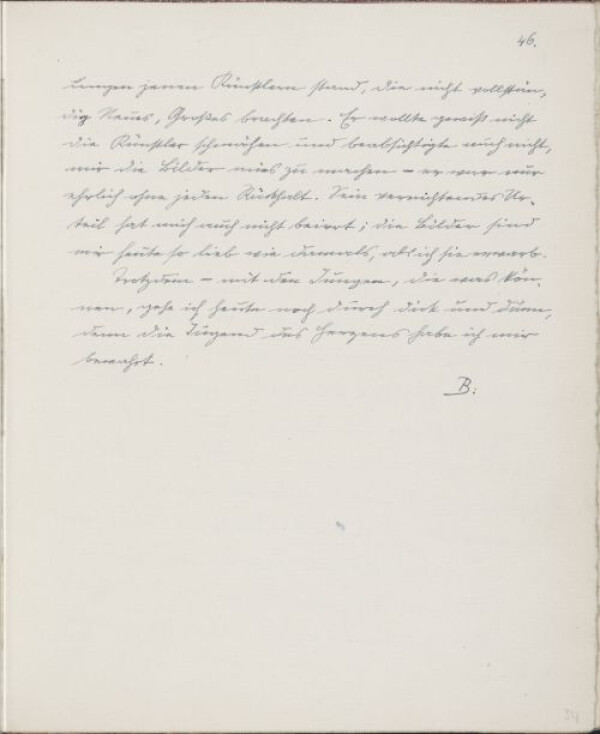 46.
jenen Künstlern stand, die nicht vollstän-
dig Neues, Großes brachten. Er wollte gewiß nicht
die Künstler schmähen und beabsichtigte auch nicht,
mir die Bilder mies zu machen – er war nur
ehrlich ohne jeden Rückhalt. Sein vernichtendes Ur-
teil hat mich auch nicht beirrt; die Bilder sind
mir heute so lieb wie damals, als ich sie erwarb.
Trotzdem – mit den Jungen, die was kön-
nen, gehe ich heute noch durch dick und dünn,
denn die Jugend des Herzens habe ich mir
bewahrt.
B.